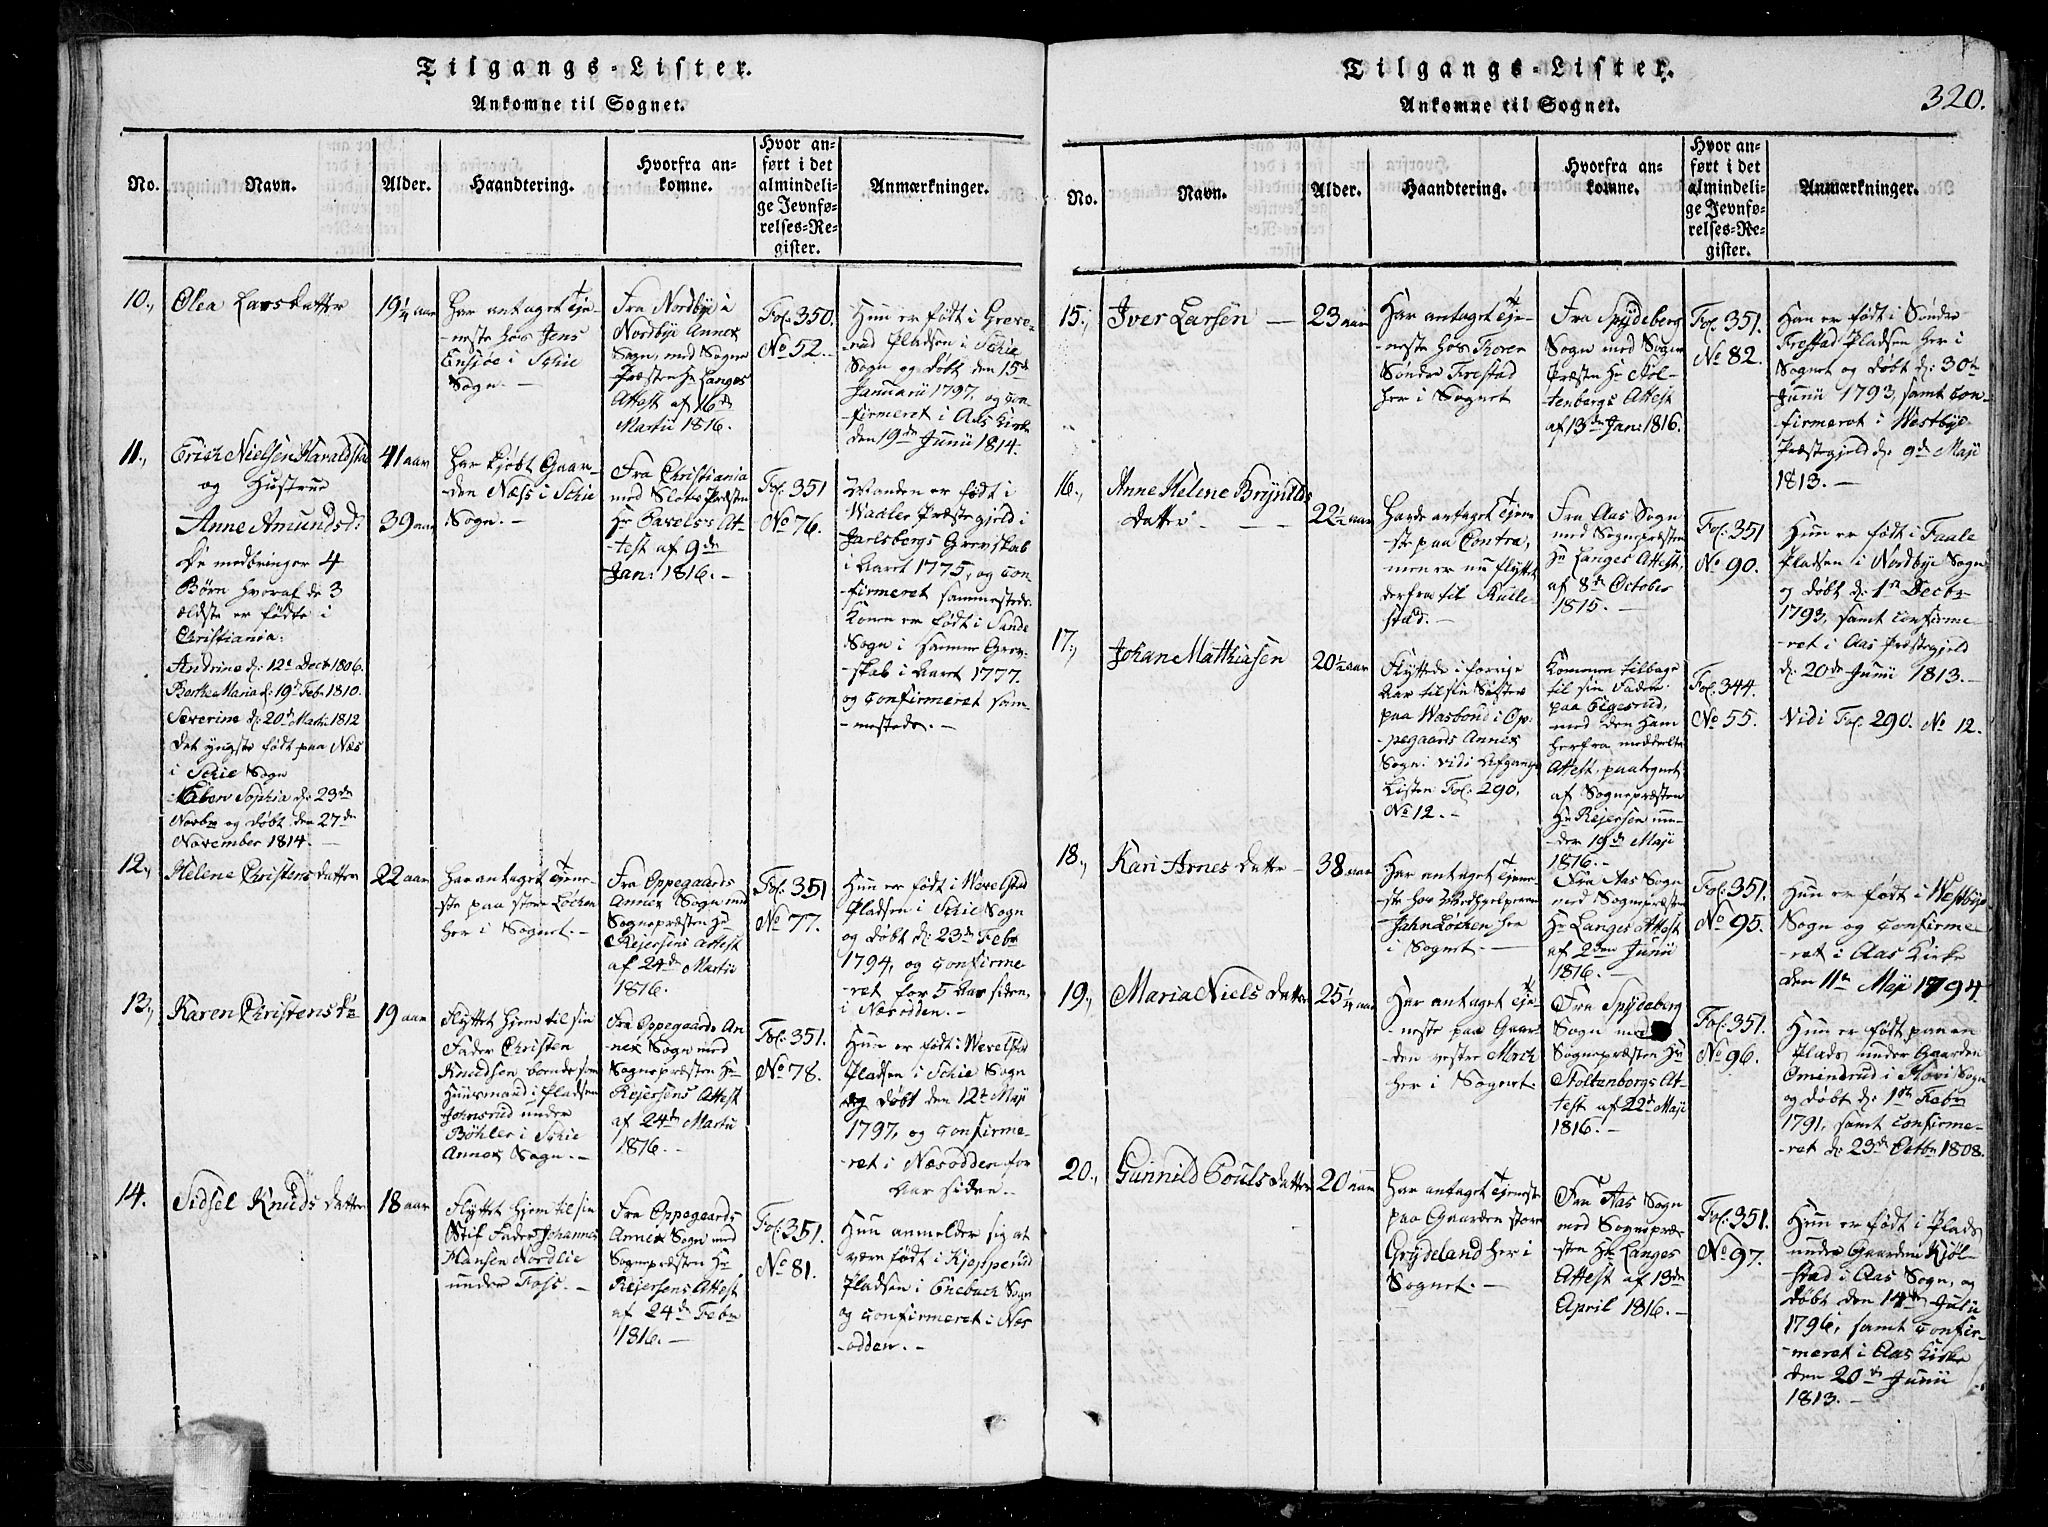 Tilgangs-Lister.
Ankomne til Sognet.
No.
Navn.
Alder.
Haandtering.
Hvorfra an-
komne.
Hvor an-
ført i det
almindeli-
ge Jevnfø-
relses-Re-
gister.
Anmærkninger.
10.,
Olea Larsdatter
19 1/4 aar
Har antaget Tje-
-neste hos Jens
Ensjøe i Schie
Sogn. -
Fra Nordbye i
Nordbye Annex
Sogn, med Sogne
Præsten Hr Langes
Attest af 16de
Martii 1816.
Fol: 350.
No 52. -
Hun er født i
Pladsen i Schie
Sogn og døbt den 15de
Januarii 1797, og con-
firmeret i Aas Kirke
den 19de Junii 1814. -
11.,
Erich Nielsen Haraldstad
og Hustrue
Anne Amundsdr
De medbringer 4
Børn hvoraf de 3
ældste er fødte i
Christiania:
Andrine d: 12te Decbr 1806.
Berthe Maria d: 19de Febr 1810.
Severine d: 20de Martii 1812
det yngste født paa Næs
i Schie Sogn
Maren Sophia d: 23de
Novbr og døbt den 27de
November 1814. -
41 aar
39 aar
Har kjøbt Gaar-
den Næss i Schie
Sogn. -
Fra Christiania
med Slots Præsten
Hr Pavels's At-
-test af 9de
Jan: 1816. -
Fol: 351
No 76.
Manden er født i
Præstegjeld i
Jarlsbergs Grevskab
i Aaret 1775, og con-
firmeret sammesteds.
Konen er født i Sande
Sogn i samme Grev-
-skab i Aaret 1777.
og confirmeret sam-
-mesteds. -
12.,
Helene Christensdatter
22 aar
Har antaget Tjene-
-ste paa store Løken
her i Sognet. -
Fra Oppegaards
Annex Sogn med
Sognepræsten Hr
Rejersens Attest
af 24de Martii
1816.
Fol: 351
No 77.
Hun er født i Wevelstad
Pladsen i Schie Sogn
og døbt d: 23de Febr
1794, og confirme-
ret for 5 Aar siden,
i Næsodden. -
13.,
Karen Christensdr
19 aar
Flyttet hjem til sin
Fader Christen
Knudsen boende som
Huusmand i Pladsen
Johnsrud under
Bøhler i Schie
Annex Sogn. -
Fra Oppegaards An-
nex Sogn med
Sognepræsten Hr
Rejersens Attest
af 24de Martii
1816. -
Fol: 351.
No 78.
Hun er født i Wevelstad
Pladsen i Schie Sogn
og døbt den 12te Maji
1797, og confirme-
-ret i Næsodden for
Aar siden. -
14.
Sidsel Knudsdatter
18 aar
Flyttet hjem til sin
Stif Fader Johannes
Hansen Nordlie
under Foss. -
Fra Oppegaards
Annex Sogn med
Sognepræsten Hr
Rejersens Attest
af 24de Febr
1816. -
Fol: 351.
No 81.
Hun anmelder sig at
være født i Kjepperud
Pladsen i Enebach Sogn
og confirmeret i Næs
odden. -
Tilgangs-Lister.
Ankomne til Sognet.
320.
No.
Navn.
Alder.
Haandtering.
Hvorfra an-
komne.
Hvor an-
ført i det
almindeli-
ge Jevnfø-
relses-Re-
gister.
Anmærkninger.
15.,
Iver Larsen -
23 aar
Har antaget Tje-
-neste hos Thoren
Søndre Frestad
her i Sognet
Fra Spydeberg
Sogn med Sogne
Præsten Hr Stol-
tenbergs Attest
af 13de Jan: 1816.
Fol: 351.
No 82.
Han er født i Søndre
Frestad Pladsen her i
Sognet og døbt d: 30te
Junii 1793, samt con-
firmeret i Westbye
Præstegjeld d: 9de Maji
1813. -
16.,
Anne Helene Brynilds
datter - -
22 1/2 aar
Havde antaget Tjene-
ste paa Contra,
men er nu flyttet
derfra til
stad. -
Fra Aas Sogn
med Sognepræsten
Hr Langes Attest,
af 8de October
1815. -
Fol: 351
No 90.
Hun er født i Faale
Pladsen i Nordbye Sogn
og døbt d: 1te Decbr
1793, samt confirme-
-ret i Aas Præstegjeld
d: 20de Junii 1813. -
17.,
Johan Matthiesen
20 1/2 aar
Flyttede i forrige
Aar til sin Søster
paa Wasbond i Op-
pegaards Annex
Sogn: vidi Afgangs
Listen Fol: 290,
No 12. -
Kommen tilbage
til sin Fader
paa Eigesrud,
med den ham
herfra meddelte
Attest, paategnet
af Sognepræsten
Hr Rejersen un-
der 19de Maji
1816. -
Fol: 344.
No 55.
Vidi Fol: 290. No 12.
18.,
Kari Arnesdatter -
38 aar
Har antaget Tjene-
ste hos
John Løken her
i Sognet. -
Fra Aas Sogn
med Sognepræsten
Hr Langes Attest
af 2den Junii
1816. -
Fol: 351.
No 95.
Hun er født i Westbye
Sogn og confirme-
-ret i Aas Kirke
den 11te Maji 1794.
19.,
Maria Nielsdatter
25 1/4 aar
Har antaget Tje-
-neste paa Gaar-
den vestre Mork
her i Sognet.
Fra Spydeberg
Sogn med
Sognepræsten Hr
Stoltenbergs At-
test af 22de Maji
1816. -
Fol: 351.
No 96.
Hun er født paa en
Plads under Gaarden
Omindrud i Skovi Sogn
og døbt d: 1te Febr
1791, samt confirme-
ret d: 23de Octbr 1808.
20.,
Gunnild Poulsdatter
20 aar
Har antaget Tjeneste
paa Gaarden store
Grydeland her i
Sognet. -
Fra Aas Sogn
med Sognepræ-
-sten Hr Langes
Attest af 13de
April 1816. -
Fol: 351.
No 97.
Hun er født i Plads
under Gaarden Kjøl-
stad i Aas Sogn, og
døbt den 14de Julii
1796, samt confir-
-meret i Aas Kirke
den 20de Junii
1813. -